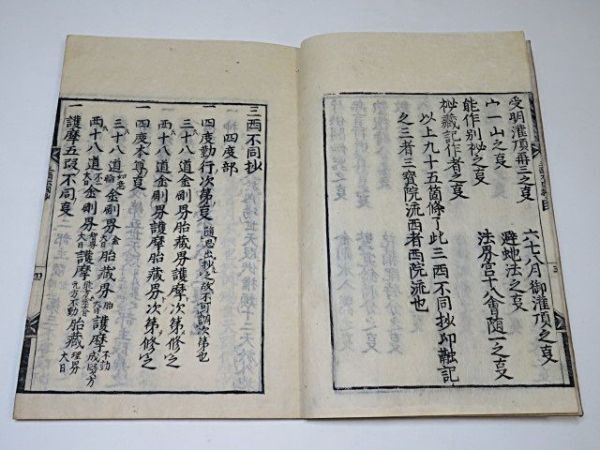 受明灌頂冊三之事
六七八月御灌頂之事
宀一山之事
避虵法之事
能作別秘之事
法界宮十八會隨一之事
秘藏記作者之事
以上九十五箇條了此三西不同抄
之三者三寳院流西者西院流也
三西不同抄
四度部
一四度勤行次第事
三十八道金剛界胎藏界護摩次第修之
西十八道金剛界護摩胎藏界次第修之
一四度本尊事
三十八道 金剛界 胎藏界 護摩
西十八道 金剛界 護摩 胎藏
一護摩五段不同事